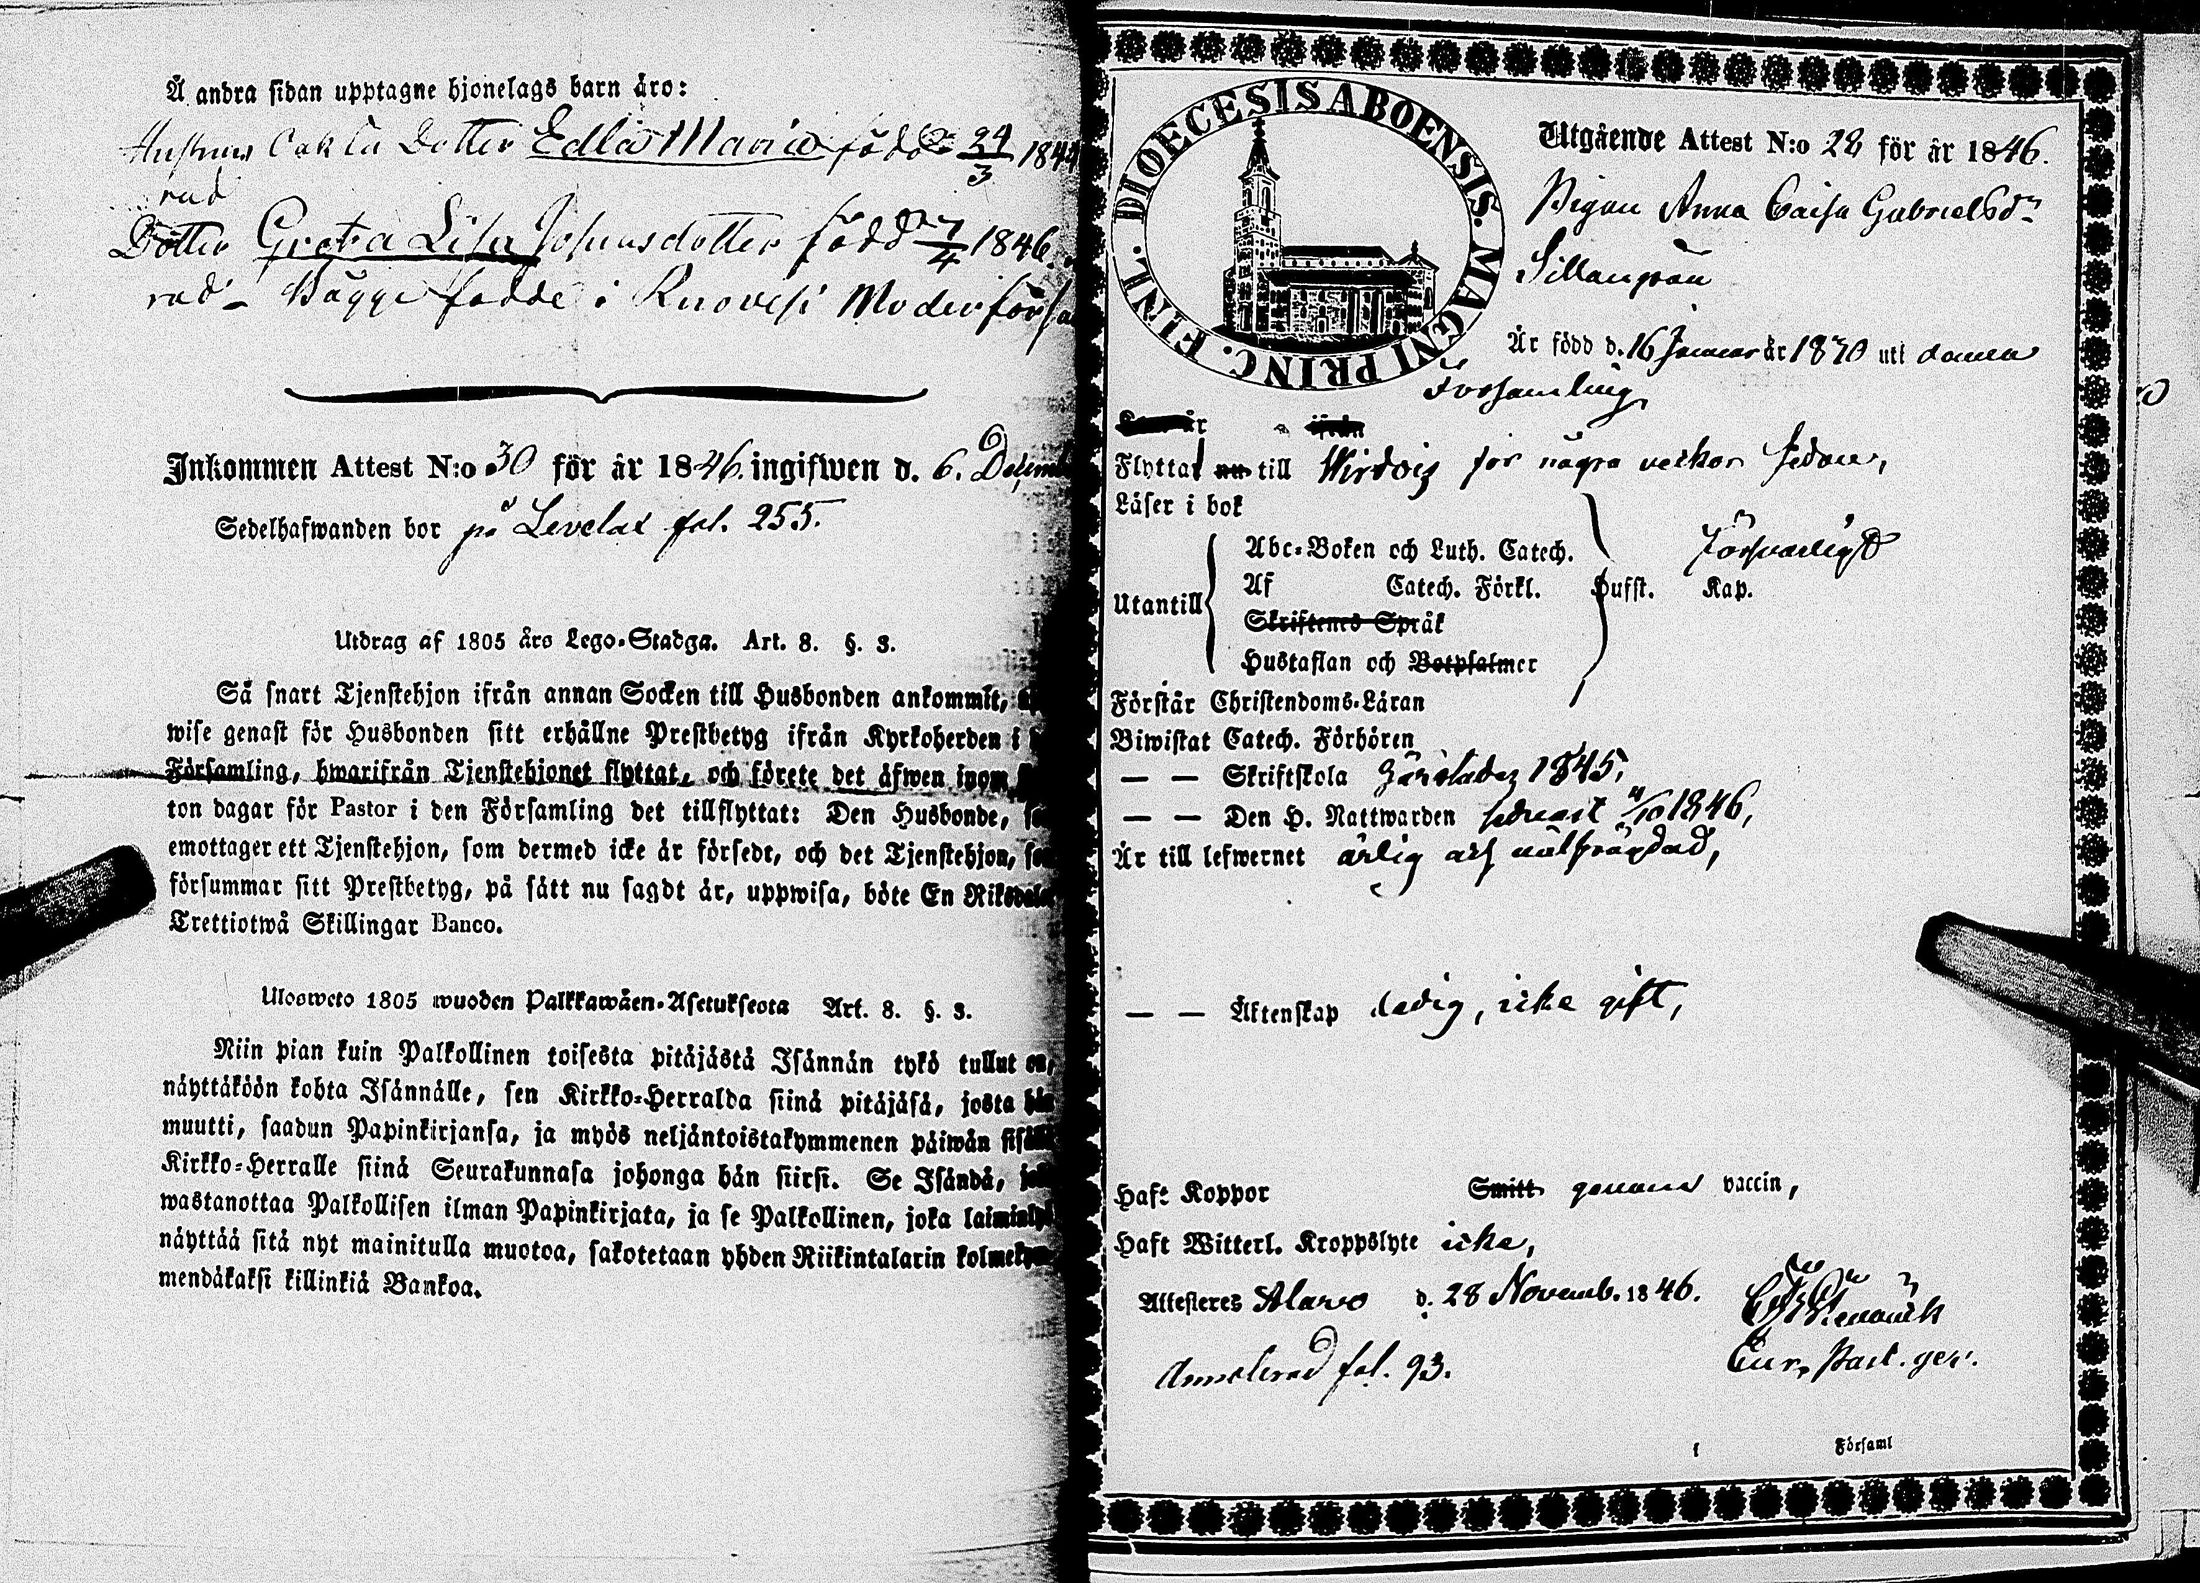 Å andra sidan upptagne hjonelags barn äro:
Hustruns Dotter Edla Maria född 24/3 184
Dotter Greta Lisa Johansdotter född 7/4 1846.
Bägge födde i Ruovesi Moderförsa
Inkommen Attest N:o 30 för år 1846. ingifwen d. 6. Decemb
Sedelhafwanden bor på Levelax fol. 255.
Utdrag af 1805 års Lego-Stadga. Art. 8. §. 3.
Så snart Tjenstehjon ifrån annan Socken till Husbonden ankommit,
wise genast för Husbonden sitt erhållne Prestbetyg ifrån Kyrkoherden i
Församling, hwarifrån Tjenstehjonet flyttat, och förete det äfwen inom
ton dagar för Pastor i den Församling det tillflyttat: Den Husbonde,
emottager ett Tjenstehjon, som dermed icke är försedt, och det Tjenstehjon,
försummar sitt Prestbetyg, på sätt nu sagdt är, uppwisa, böte En Riksdaler
Trettiotwå Skillingar Banco.
Ulosweto 1805 wuoden Palkkawäen-Asetuksesta Art. 8. §. 3.
Niin pian kuin Palkollinen toisesta pitäjästä Isännän tykö tullut on,
näyttäköön kohta Isännälle, sen Kirkko-Herralda siinä pitäjäsä, josta hän
muutti, saadun Papinkirjansa, ja myös neljäntoistakymmenen päiwän sisällä
Kirkko-Herralle siinä Seurakunnasa johonga hän siirsi. Se Isändä,
wastanottaa Palkollisen ilman Papinkirjata, ja se Palkollinen, joka laiminlyö
näyttää sitä nyt mainitulla muotoa, sakotetaan yhden Riikintalarin kolmekym-
mendäkaksi killinkiä Bankoa.
DIOECESIS ABOENSIS. MAGNI PRINC. FINL.
Utgående Attest N:o 28 för år 1846.
Pigan Anna Caisa Gabrielsdr
Sillanpää
Är född d. 16 Januar år 1820 uti denna
Församling
Flyttat nu till Wirdois för några veckor sedan,
Läser i bok
Abc-Boken och Luth. Catech. Försvarligt
Utantill Af Catech. Förkl. Hufst. Kap.
Skriftenes Språk
Hustaflan och Botpsalmer
Förstår Christendoms-Läran
Biwistat Catech. Förhören
— — Skriftskola 1845,
— — Den H. Nattwarden senast 4/10 1846,
Är till lefwernet ärlig och välfrägdad,
— — Äktenskap ledig, icke gift,
Haft Koppor Smitt genom vaccin,
Haft Witterl. Kroppslyte icke,
Attesteres Alavo d. 28 Novemb. 1846.
Annoterad fol. 93. Past.
Församl